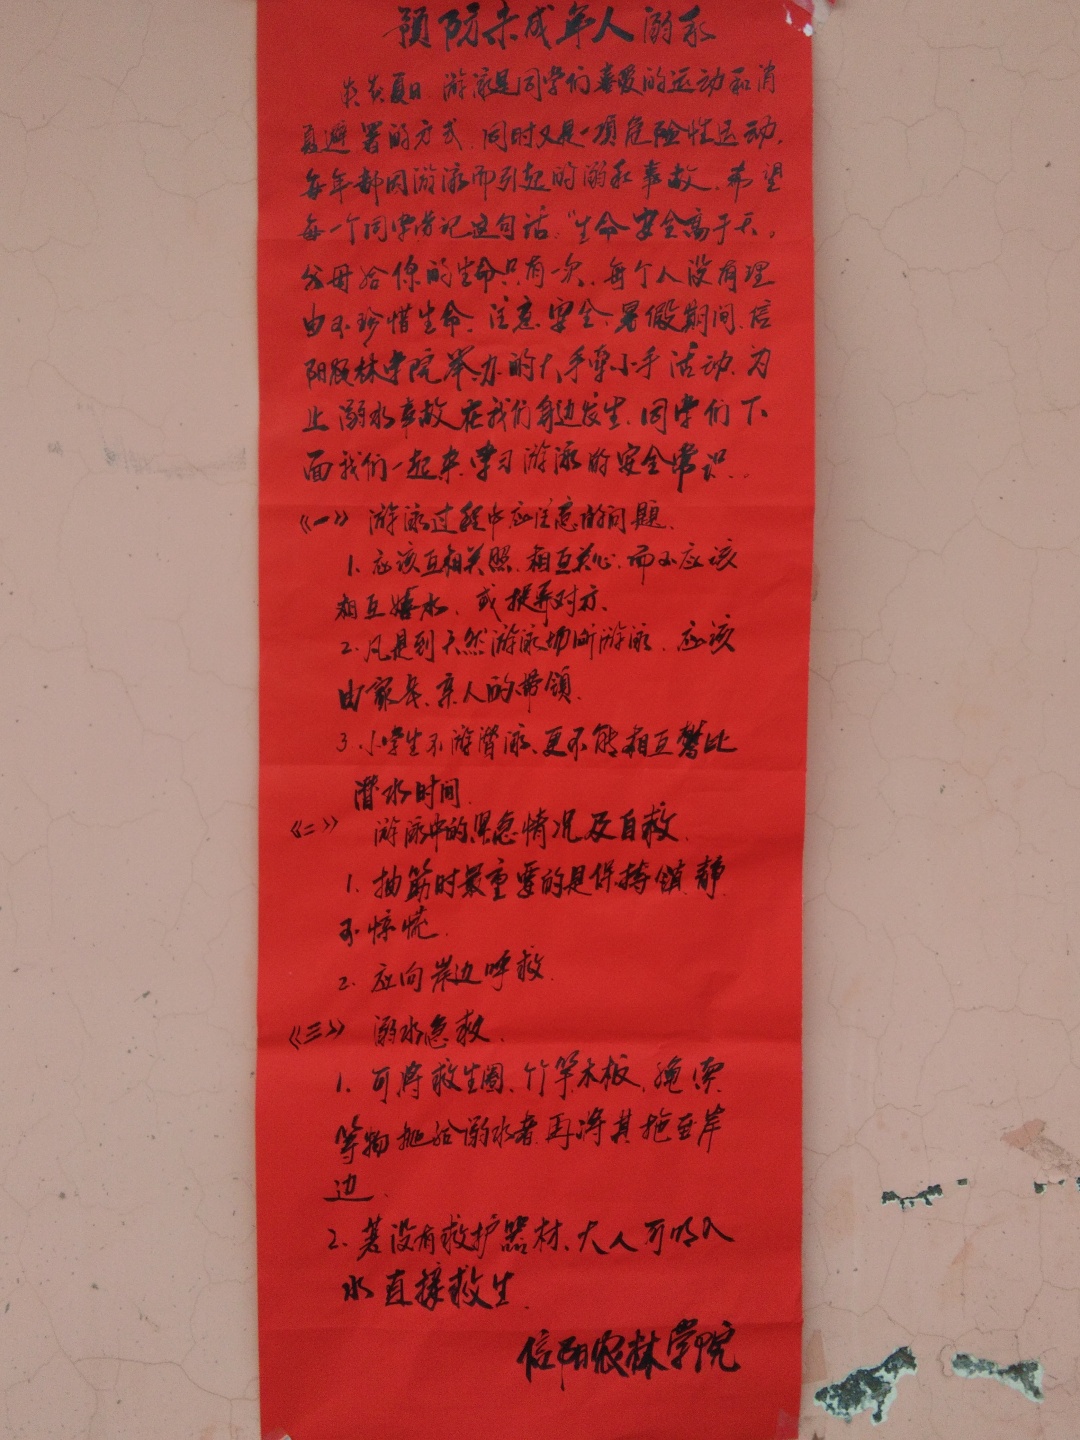 预防未成年人溺水
炎炎夏日,游泳是同学们喜爱的运动和消
夏避署的方式,同时又是一项危险性运动,
每年都因游泳而引起的溺水事故,希望
每一个同学谨记这句话,“生命安全高于天,
父母给你的生命只有一次,每个人没有理
由不珍惜生命、注意安全,暑假期间,信
阳农林学院举办的大手牵小手活动,为
止溺水事故在我们身边发生,同学们下
面我们一起来学习游泳的安全常识...
《一》 游泳过程中应注意的问题、
1、应该互相关照、相互关心,而不应该
相互嬉水、或捉弄对方、
2、凡是到天然游泳场所游泳,应该
由家长、亲人的带领.
3、小学生不游潜泳、更不能相互攀比
潜水时间.
《二》 游泳中的紧急情况及自救.
1、抽筋时最重要的是保持镇静
不惊慌.
2、应向岸边呼救.
《三》 溺水急救、
1、可将救生圈、竹竿、木板、绳索
等物抛给溺水者、再将其拖至岸
边、
2、若没有救护器材、大人可以入
水直接救生.
信阳农林学院